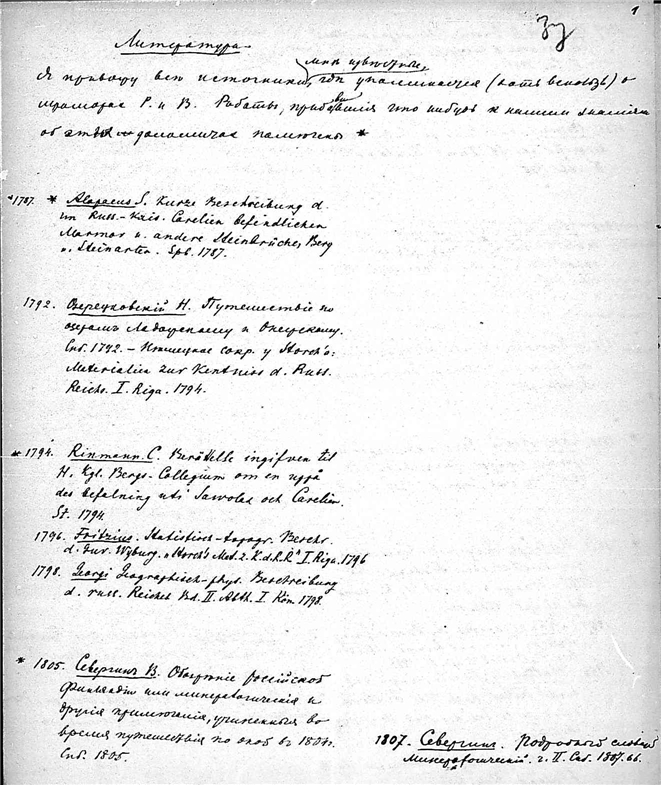 1
37
Литература
мнѣ извѣстные,
Я привожу всѣ источники, гдѣ упоминается (хоть вскользь) о
мраморах Р. и В. Работы, прибавившія что нибудь к нашим знаніям
об этих доломитах помѣчены *
*1787. * Alopaeus S. Kurze Beschreibung d.
im Russ.-Kais. Carelien befindlichen
Marmor u. andere Steinbrüche, Berg
u. Steinarten. Spb. 1787.
1792. Озерецковскій Н. Путешествіе по
озерамъ Ладожскому и Онежскому.
Спб. 1792. – Нѣмецкое сокр. у Storch'a:
Materialien zur Kentniss d. Russ.
Reichs. I. Riga. 1794.
* 1794. Rinmann. C. Berättelse ingifven til
H. Kgl. Bergs-Collegium om en uppå
des befalning uti Savolax och Carelien.
St. 1794.
1796. Fritzius. Statistisch-topogr. Beschr.
d. Guv. Wyburg. „Storch's Mat. z. K. d. R. R." I. Riga. 1796
1798. Georgi Geographisch-phys. Beschreibung
d. russ. Reiches Bd. II. Abth. I. Kön. 1798.
* 1805. Севергинъ В. Обозрѣніе россійской
Финляндіи или минералогическія и
другія примѣчанія, учиненныя во
время путешествія по оной въ 1804.
Спб. 1805.
1807. Севергинъ. Подробный словарь
Минералогическій. ч. II. Спб. 1807. 66.